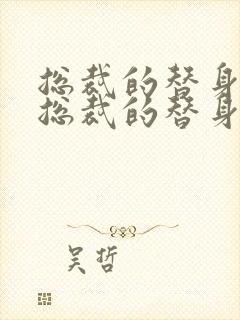 总裁的替身
总裁的替身
吴哲